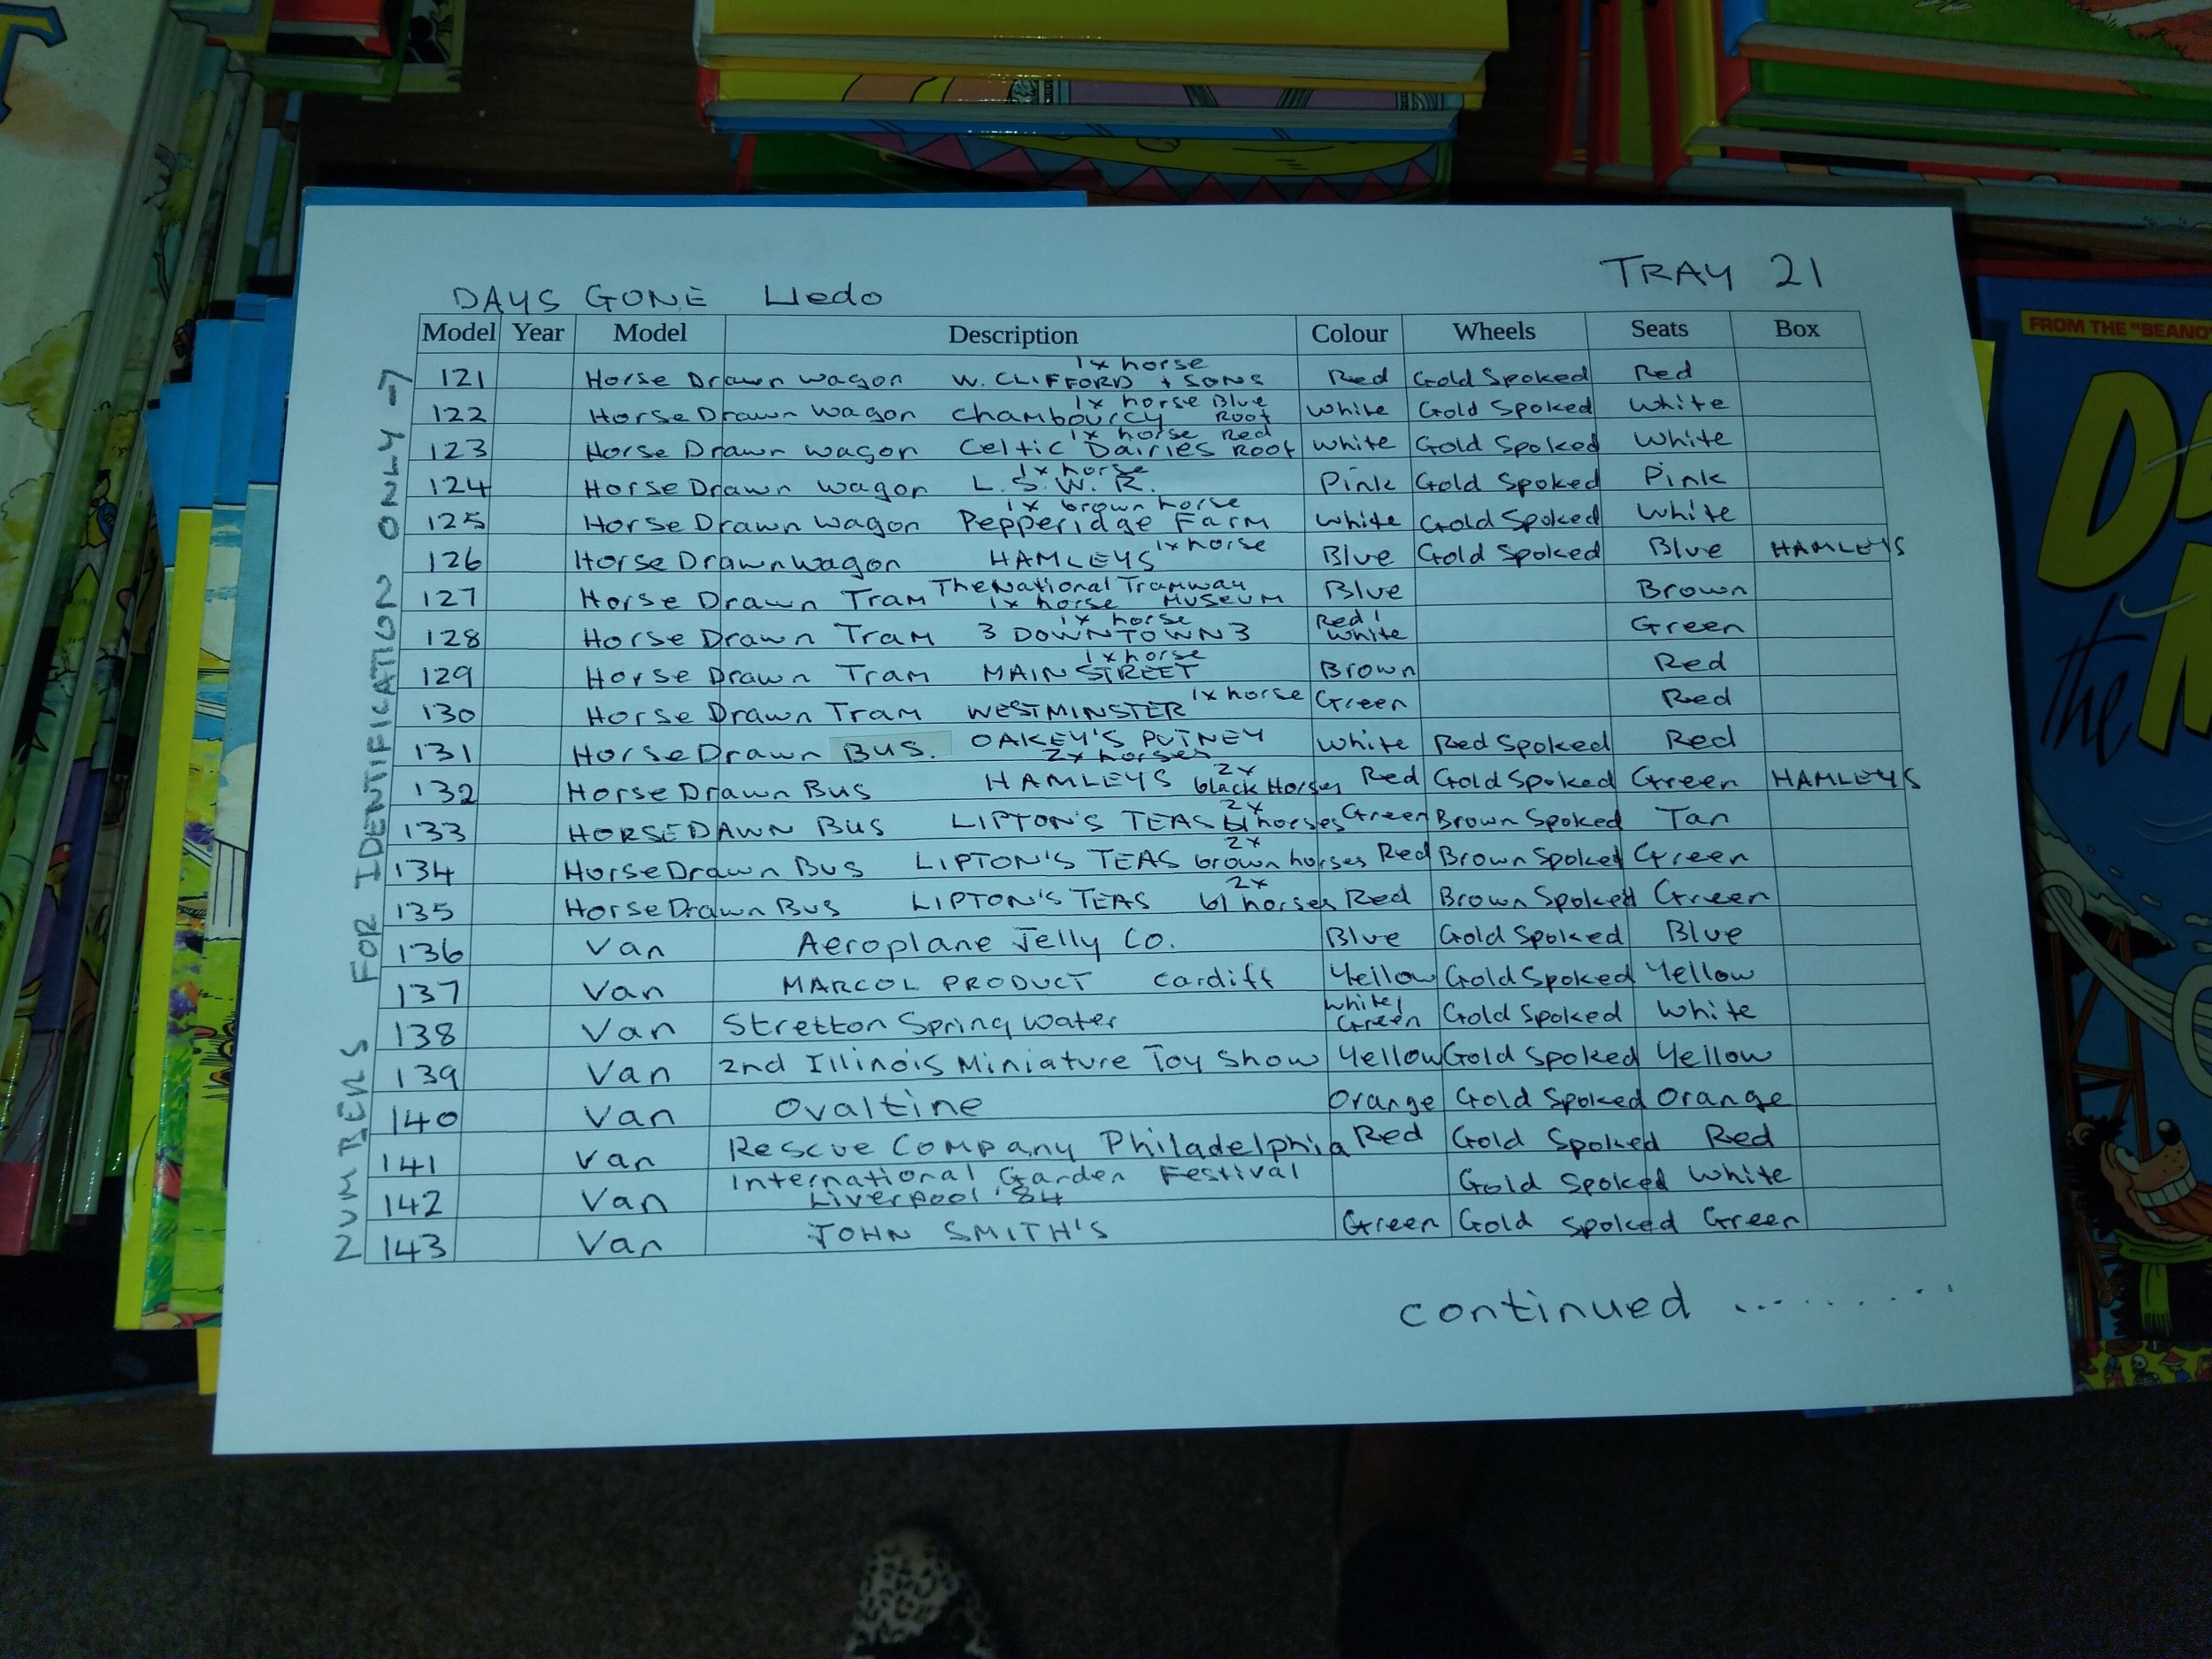 FROM THE "BEANO"
TRAY 21
DAYS GONE Lledo
Model Year Model Description Colour Wheels Seats Box
NUMBERS FOR IDENTIFICATION ONLY
1x horse
121 Horse Drawn wagon W. CLIFFORD + SONS Red Gold Spoked Red
1x horse Blue
122 Horse Drawn wagon Chambourcy Roof white Gold Spoked white
1x horse Red
123 Horse Drawn wagon Celtic Dairies Roof white Gold Spoked white
1x horse
124 Horse Drawn wagon L.S.W.R. Pink Gold Spoked Pink
1x brown horse
125 Horse Drawn wagon Pepperidge Farm white Gold Spoked white
126 Horse Drawn wagon HAMLEYS 1x horse Blue Gold Spoked Blue HAMLEYS
The National Tramway
127 Horse Drawn Tram 1x horse Museum Blue Brown
1x horse Red/
128 Horse Drawn Tram 3 DOWNTOWN 3 white Green
1x horse
129 Horse Drawn Tram MAIN STREET Brown Red
130 Horse Drawn Tram WESTMINSTER 1x horse Green Red
131 Horse Drawn BUS. OAKEY'S PUTNEY white Red Spoked Red
2x horses
2x
132 Horse Drawn Bus HAMLEYS black Horses Red Gold Spoked Green HAMLEYS
2x
133 HORSE DAWN BUS LIPTON'S TEAS bl horses Green Brown Spoked Tan
2x
134 Horse Drawn Bus LIPTON'S TEAS brown horses Red Brown Spoked Green
2x
135 Horse Drawn Bus LIPTON'S TEAS bl horses Red Brown Spoked Green
136 Van Aeroplane Jelly Co. Blue Gold Spoked Blue
137 Van MARCOL PRODUCT Cardiff Yellow Gold Spoked Yellow
white/
138 Van Stretton Spring water Green Gold Spoked white
139 Van 2nd Illinois Miniature Toy Show Yellow Gold Spoked Yellow
140 Van Ovaltine Orange Gold Spoked Orange
141 Van Rescue Company Philadelphia Red Gold Spoked Red
International Garden Festival
142 Van Liverpool '84 Gold Spoked White
143 Van JOHN SMITH'S Green Gold Spoked Green
continued .........
the